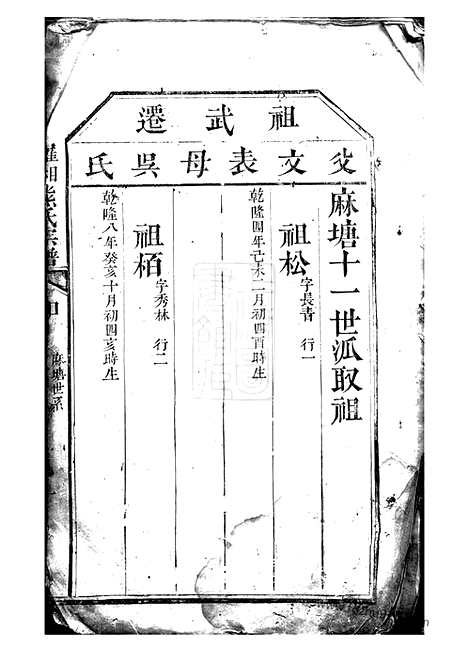 祖武遷
父文表母吳氏
麻塘十一世派取祖
祖松 字長青 行一
乾隆四年己未二月初四酉時生
祖栢 字秀林 行二
乾隆八年癸亥十月初四亥時生
氏宗譜
麻塘世系